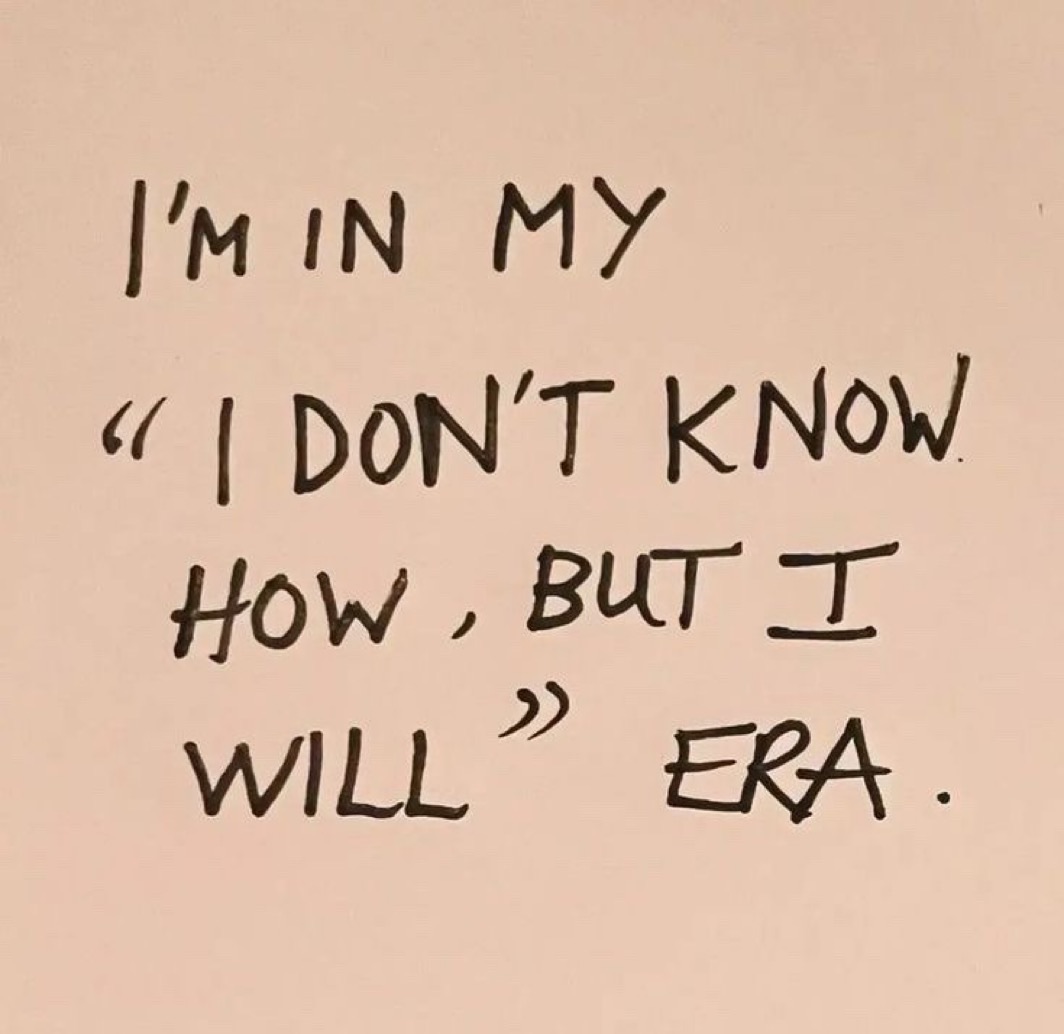 I'M IN MY
“I DON'T KNOW
HOW, BUT I
WILL” ERA.